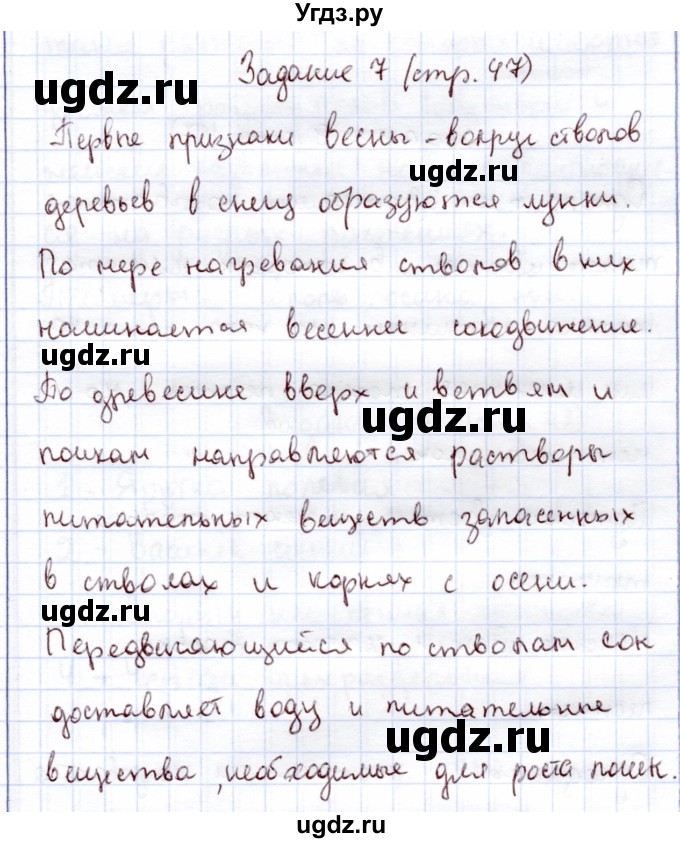 Угдз.ру
Задание 7 (стр. 47)
ugdz.ru
Первые признаки весны - вокруг стволов
ugdz.ru
деревьев в снегу образуются лунки.
По мере нагревания стволов в них
начинается весеннее сокодвижение.
ugdz.ru
По древесине вверх и ветвям и
ugdz.ru
почкам направляются растворы
питательных веществ запасенных
в стволах и корнях с осени.
ugdz.ru
Передвигающийся по стволам сок
доставляет воду и питательные
ugdz.ru
вещества, необходимые для роста почек.
ugdz.ru